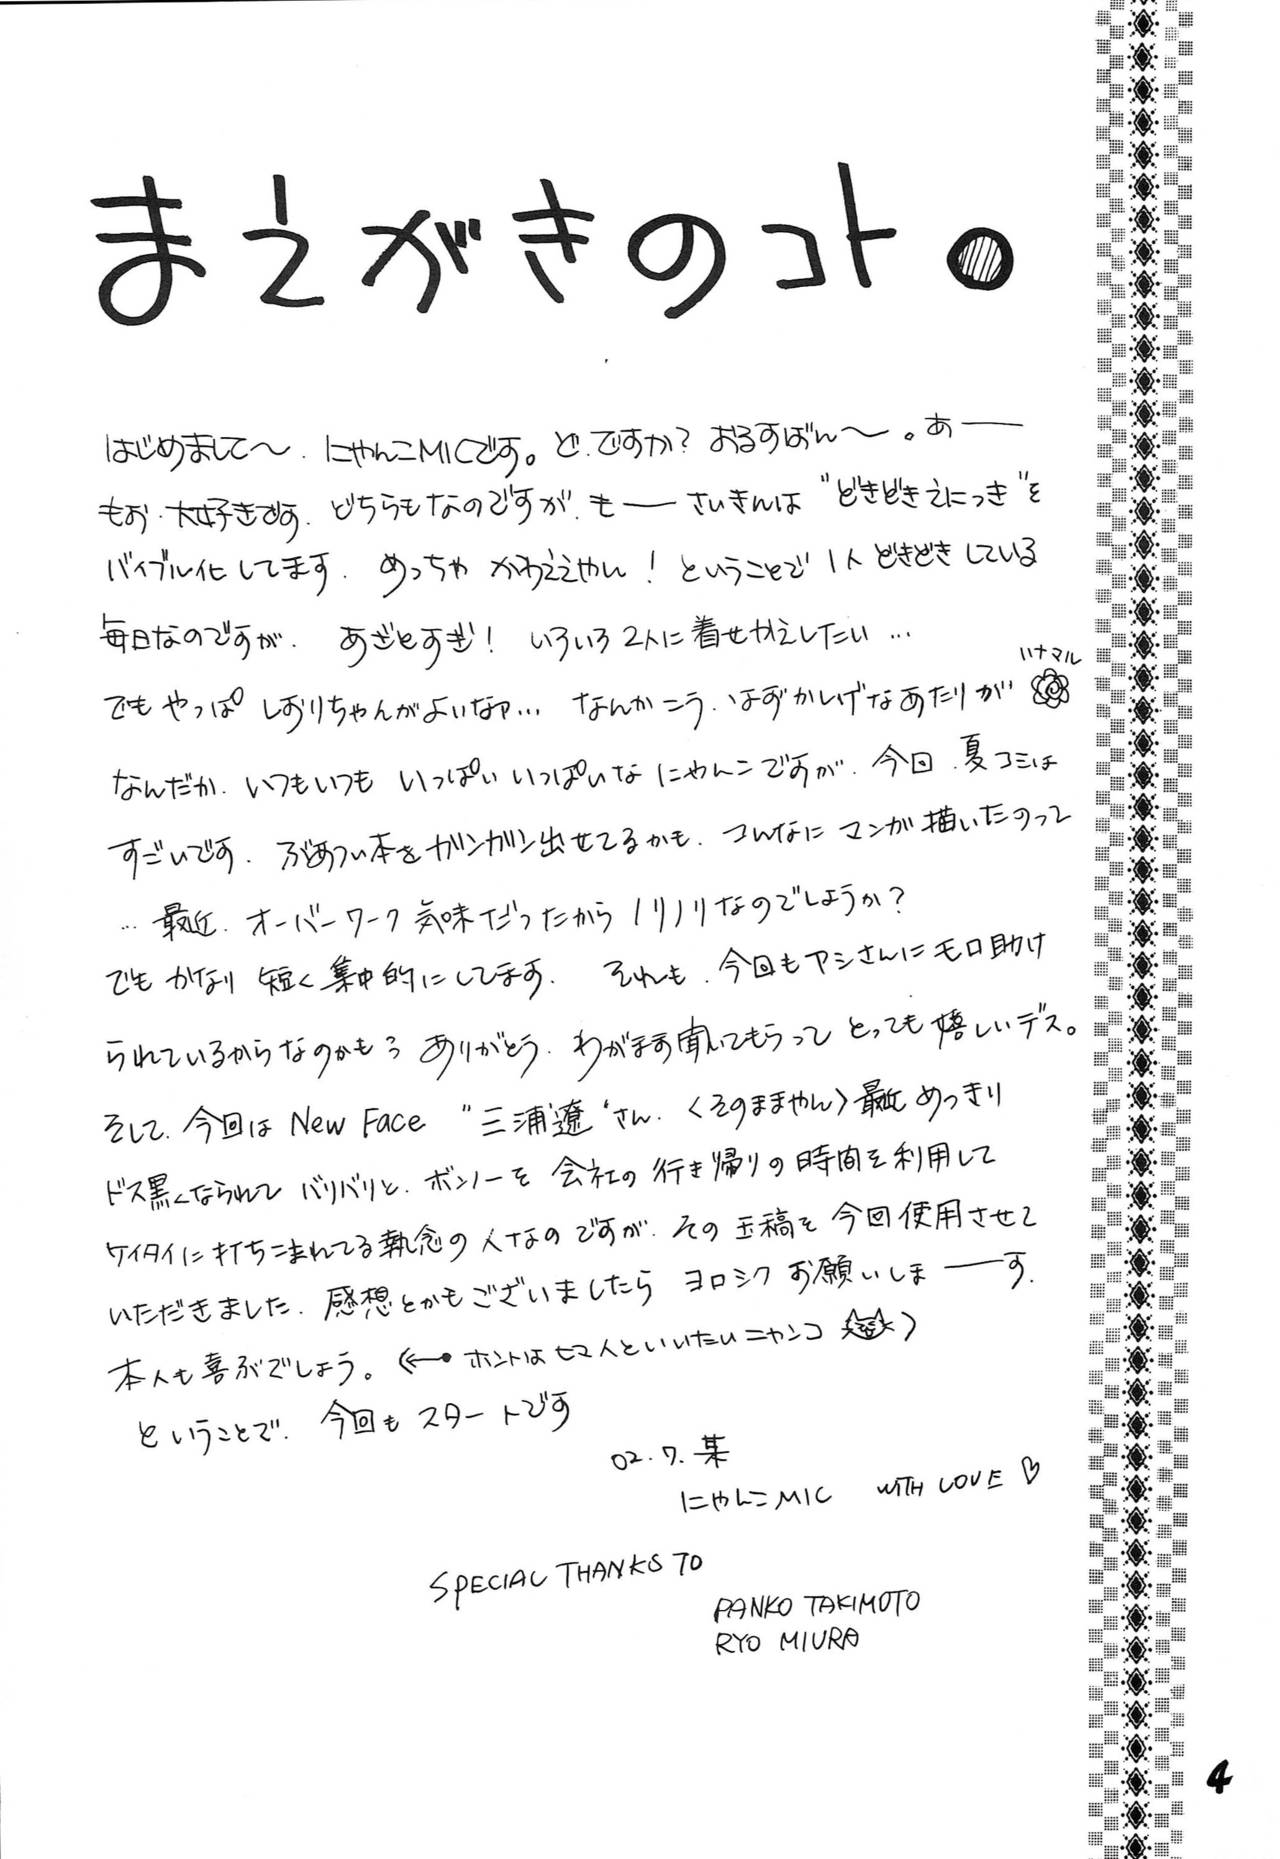 まえがきのコト。
はじめまして〜. にゃんこMICです。ど.ですか? おるすばん〜。あ——
もお・大好きです. どちらもなのですが. も—— さいきんは "どきどきえにっき"を
バイブル化してます. めっちゃ かわええやん! ということで 1人 どきどきしている
毎日なのですが. あざとすぎ! いろいろ2人に着せかえしたい…
ハナマル
でも やっぱ しおりちゃんがよいなァ… なんかこう. はずかしげなあたりが
なんだか. いつもいつも いっぱい いっぱいな にゃんこですが. 今回. 夏コミは
すごいです. ぶあつい本をガンガン出せてるかも. こんなに マンガ描いたのって
… 最近. オーバーワーク 気味だったから ノリノリなのでしょうか?
でも かなり 短く集中的にしてます. それも. 今回もアシさんにモロ助け
られているからなのかもう ありがとう. わがまま聞いてもらって とっても嬉しいデス。
そして. 今回は New Face "三浦遼"さん. <そのままやん> 最近めっきり
ドス黒くなられて バリバリと. ボンノーを 会社の行き帰りの時間を利用して
ケイタイに打ちこまれてる執念の人なのですが. その玉稿を今回使用させて
いただきました. 感想とかもございましたら ヨロシク お願いしま——す.
本人も喜ぶでしょう。(← ホントは セマ人といいたいニャンコ )
ということで. 今回も スタートです
02.7.某
にゃんこMIC WITH LOVE ♡
SPECIAL THANKS TO
PANKO TAKIMOTO
RYO MIURA
4